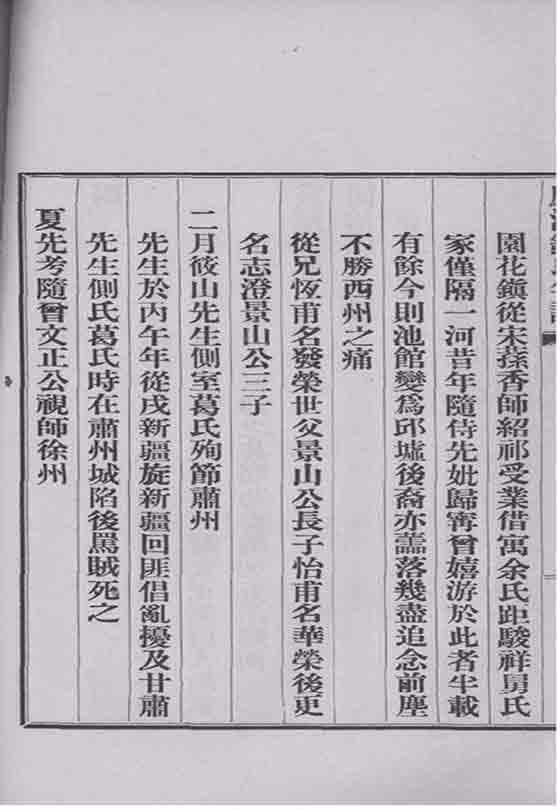 園花鎭從宋蓀香師紹祁受業借寓余氏距駿祥舅氏
家僅隔一河昔年隨侍先妣歸甯曾嬉游於此者半載
有餘今則池館變爲邱墟後裔亦蕭落幾盡追念前塵
不勝西州之痛
從兄恆甫名發榮世父景山公長子怡甫名華榮後更
名志澄景山公三子
二月筱山先生側室葛氏殉節肅州
先生於丙午年從戍新疆旋新疆回匪倡亂擾及甘肅
先生側氏葛氏時在肅州城陷後罵賊死之
夏先考隨曾文正公視師徐州